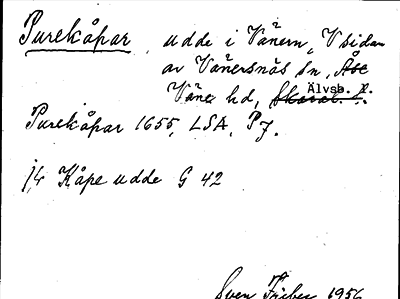 Purekåpar, udde i Vänern, V sidan
av Vänersnäs sn, Åse
Väne hd, Skarab. l. Älvsb. l.
Purekåpar 1655, LSA, P 7.
jfr Kåpe udde G 42
Sven Fäiber 1956